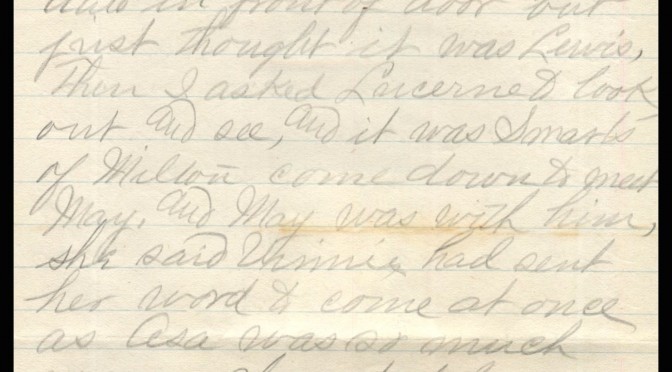 auto in front of door but
just thought it was Lewis,
Then I asked Lucerne to look
out and see, and it was Smarts
of Milton come down to meet
May, and May was with him,
she said Vinnie had sent
her word to come at once
as Asa was so much